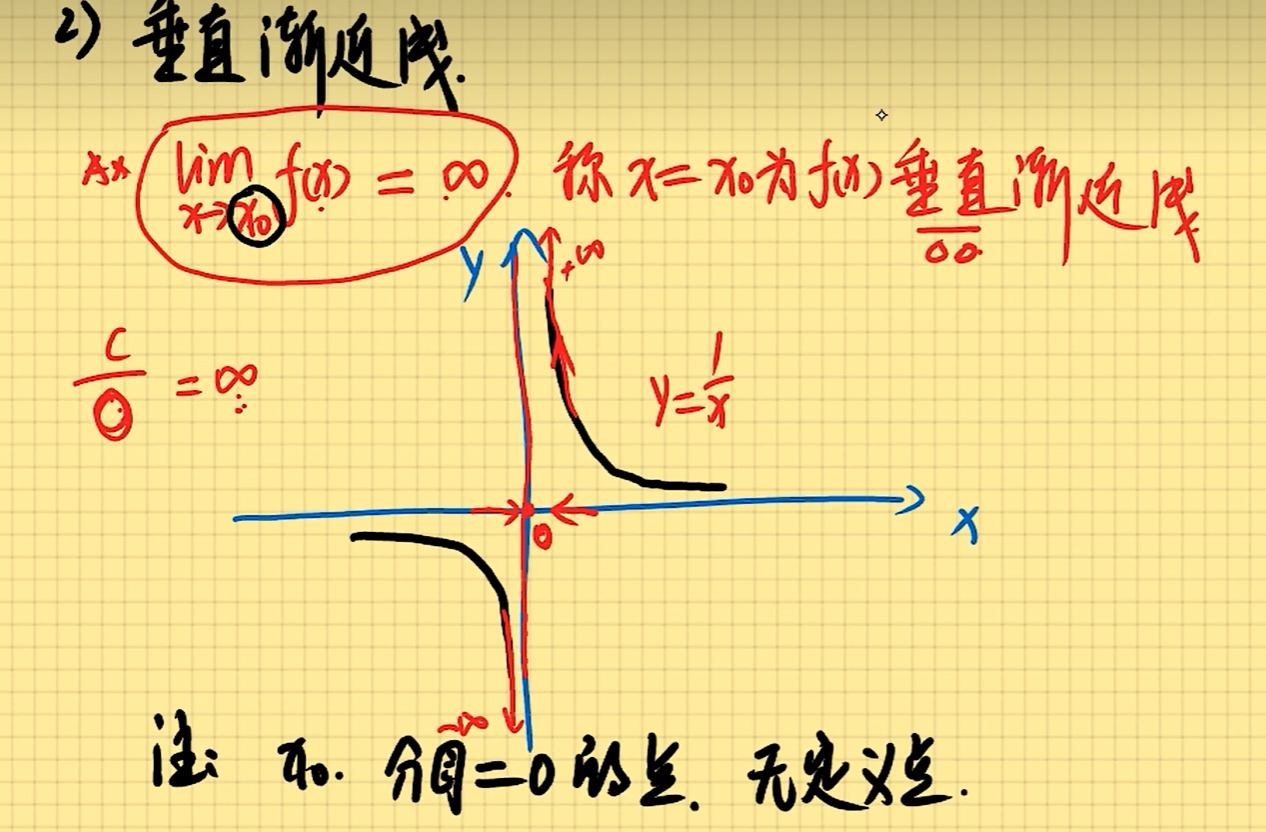 2) 垂直渐近线.
lim x→x₀ f(x) = ∞. 称 x=x₀为f(x)垂直渐近线
y +∞
C/0 = ∞
y=1/x
0
x
-∞
注: x₀. 分母=0的点. 无定义点.